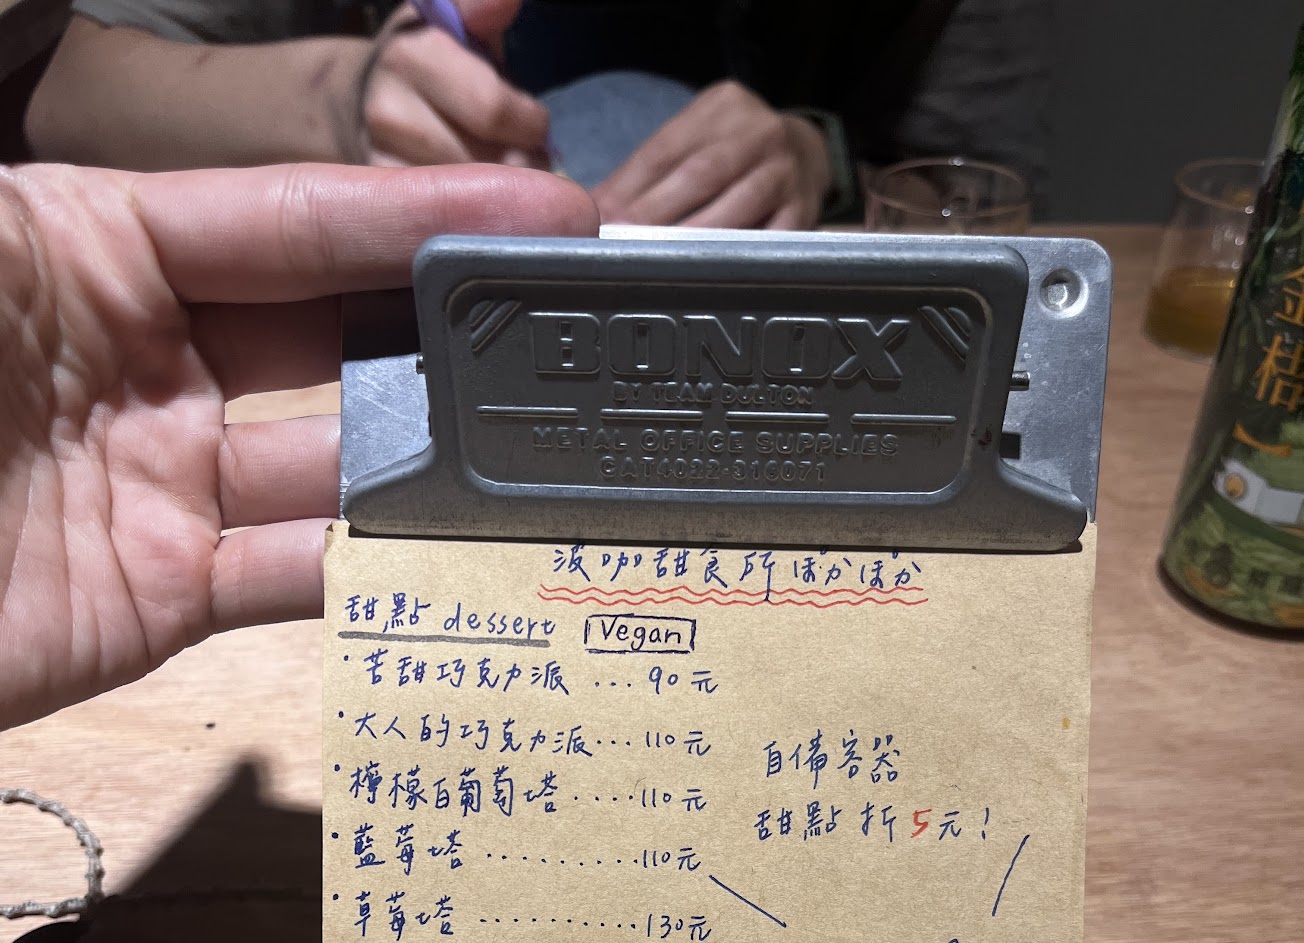 BONOX
BY TEAM DULTON
METAL OFFICE SUPPLIES
CAT4022-316071
波咖甜食所ぽかぽか
甜點 dessert Vegan
・苦甜巧克力派 ... 90元
・大人的巧克力派...110元
・檸檬白葡萄塔 ....110元
・藍莓塔 .........110元
・草莓塔 ..........130元
自備容器
甜點折5元!
金桔一